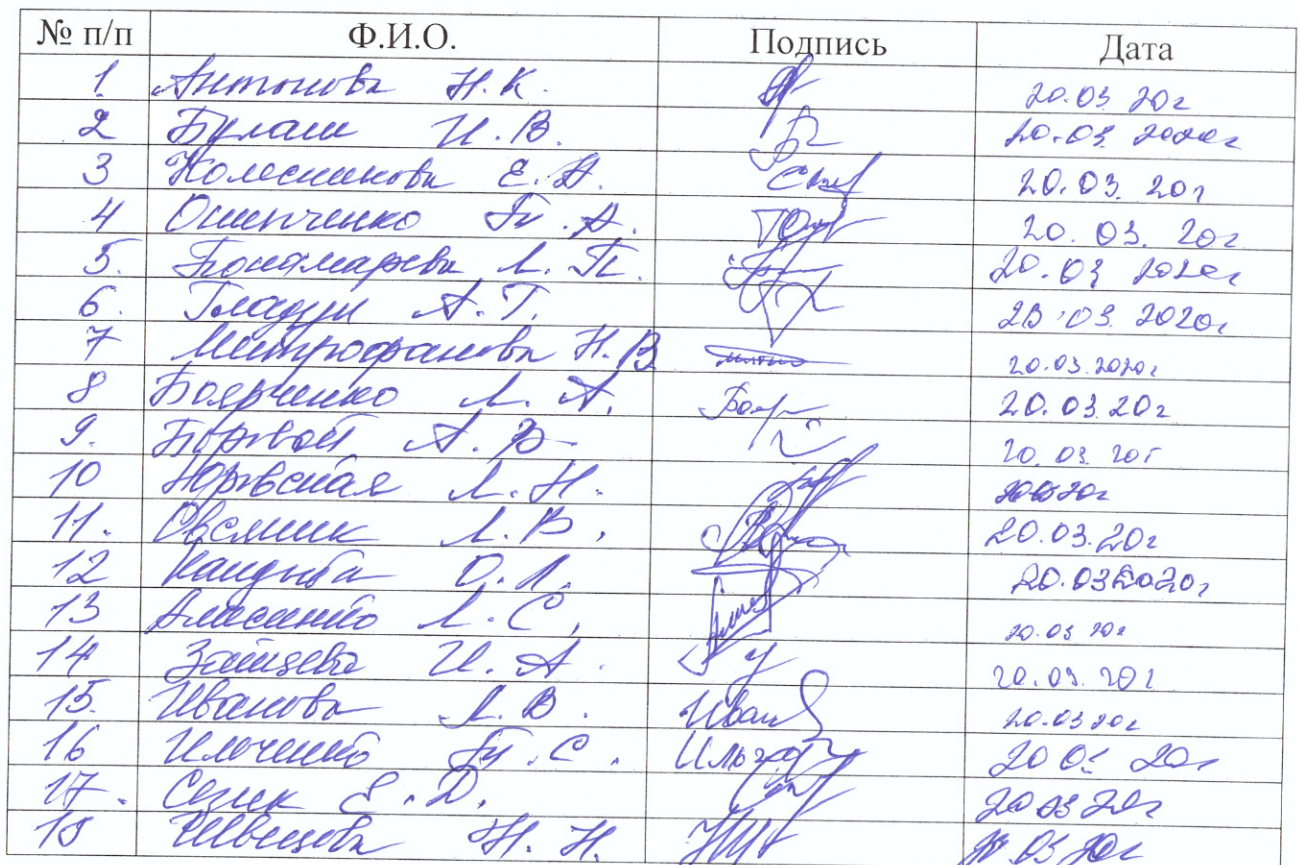 № п/п Ф.И.О. Подпись Дата
1. Антонова Н.К. 20.03 20г
2 Булаш И.В. 20.03 2020г
3 Колесникова Е.Н. 20.03. 20г
4 Ошенченко Т.А. 20.03. 20г
5. Пономарева Л.П. 20.03 2020г
6. Гладун А.Г. 20.03. 2020г
7 Митрофанова Н.В 20.03.2020г
8 Боярченко Л.А. Бояр 20.03.20г
9. А.В. 20.03. 20г
10 Л.Н. 20г
11. Овсяник Л.В. 20.03.20г
12 Кандыба О.Л. 20.03 2020г
13 Л.С. 20.03 20г
14 Зайцева И.А. 20.03.20г
15. Иванова Л.В. Иван 20.03 20г
16 Ильченко Т.С. Ильч 20 03 20г
17. Е.Д. 20 03 20г
18 Швецова Н.Н. 03 20г